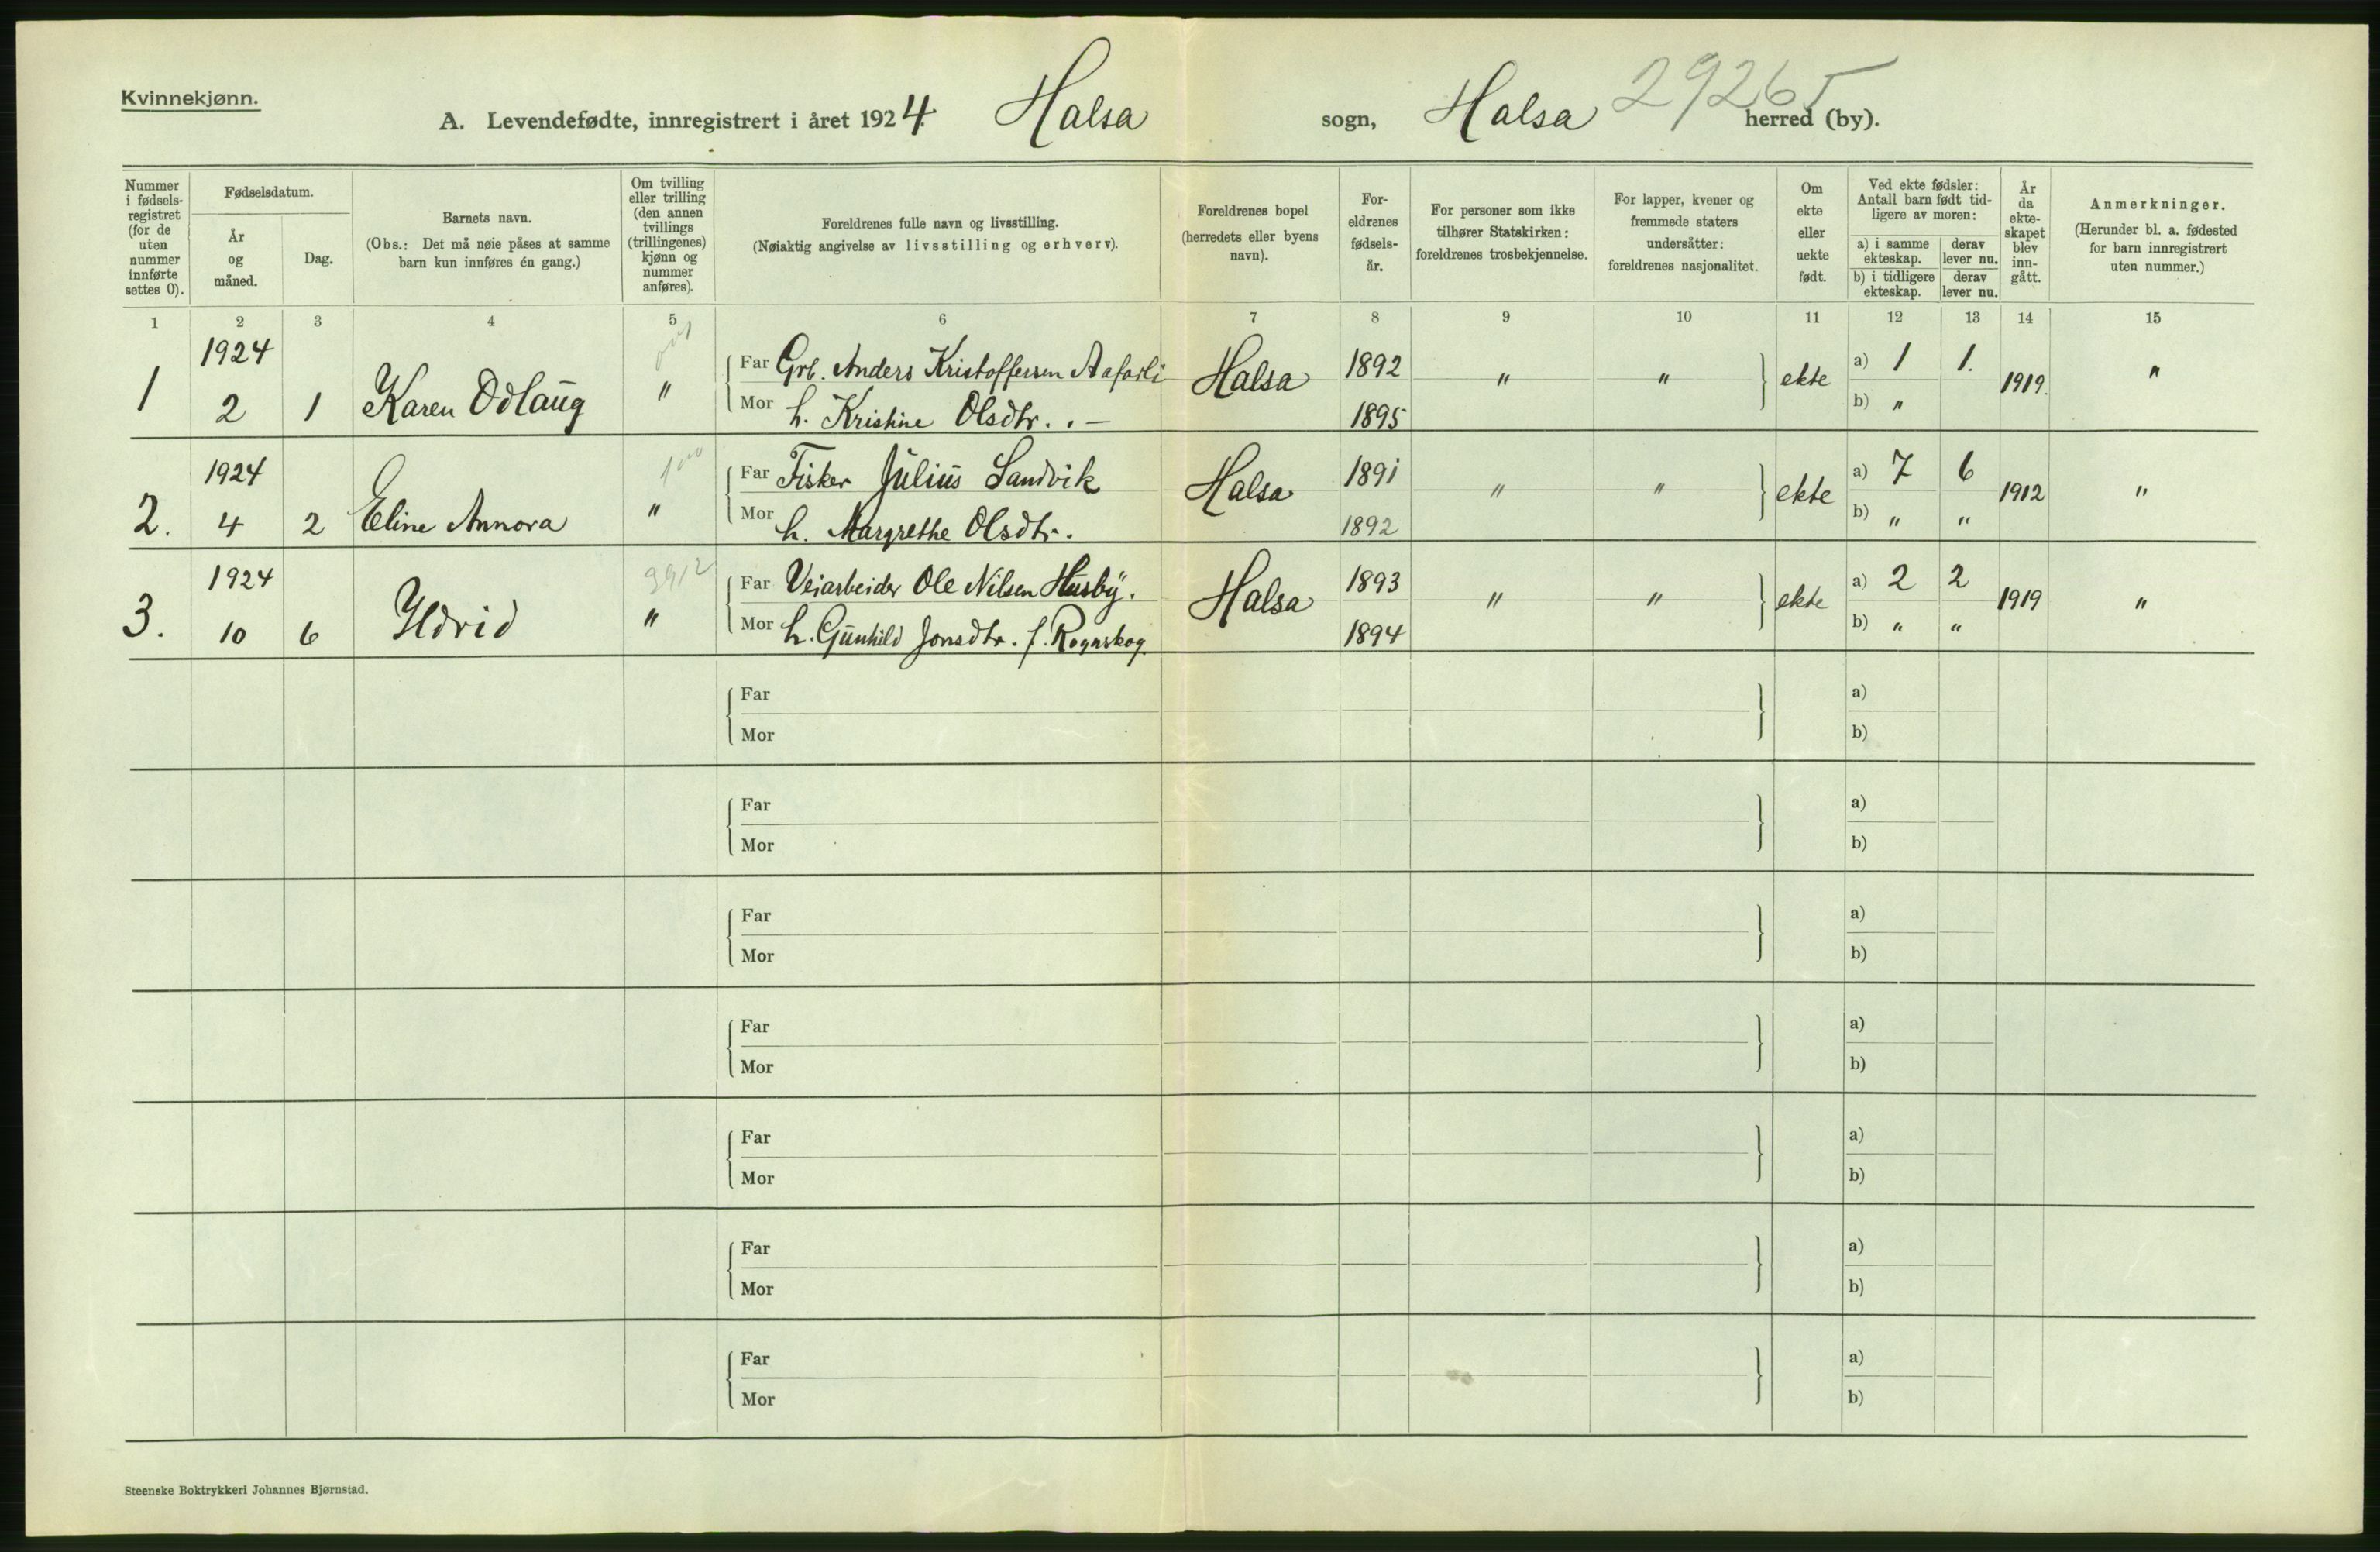 Kvinnekjønn.
A. Levendefødte, innregistrert i året 1924. Halsa sogn, Halsa herred (by). 29265
Nummer i fødsels-registret (for de uten nummer innførte settes 0).
Fødselsdatum.
År og måned.
Dag.
Barnets navn.
(Obs.: Det må nøie påses at samme barn kun innføres én gang.)
Om tvilling eller trilling (den annen tvillings (trillingenes) kjønn og nummer anføres).
Foreldrenes fulle navn og livsstilling.
(Nøiaktig angivelse av livsstilling og erhverv).
Foreldrenes bopel (herredets eller byens navn).
For-eldrenes fødsels-år.
For personer som ikke tilhører Statskirken: foreldrenes trosbekjennelse.
For lapper, kvener og fremmede staters undersåtter: foreldrenes nasjonalitet.
Om ekte eller uekte født.
Ved ekte fødsler: Antall barn født tid-ligere av moren:
a) i samme ekteskap.
derav lever nu.
b) i tidligere ekteskap.
derav lever nu.
År da ekte-skapet blev inn-gått.
Anmerkninger.
(Herunder bl. a. fødested for barn innregistrert uten nummer.)
1 2 3 4 5 6 7 8 9 10 11 12 13 14 15
1 1924 2 1 Karen Odlaug "
Far Grb. Anders Kristoffersen Aafarli Halsa 1892 " " ekte a) 1 1. 1919. "
Mor h. Kristine Olsdtr. . — 1895 b) "
2. 1924 4 2 Eline Annora "
Far Fisker Julius Sandvik Halsa 1891 " " ekte a) 7 6 1912 "
Mor h. Margrethe Olsdtr. 1892 b) " "
3. 1924 10 6 Yldrid " 3912
Far Veiarbeider Ole Nilsen Husby. Halsa 1893 " " ekte a) 2 2 1919 "
Mor h. Gunhild Jonsdtr. f. Rognskog. 1894 b) " "
Far a)
Mor b)
Far a)
Mor b)
Far a)
Mor b)
Far a)
Mor b)
Far a)
Mor b)
Far a)
Mor b)
Far a)
Mor b)
Steenske Boktrykkeri Johannes Bjørnstad.